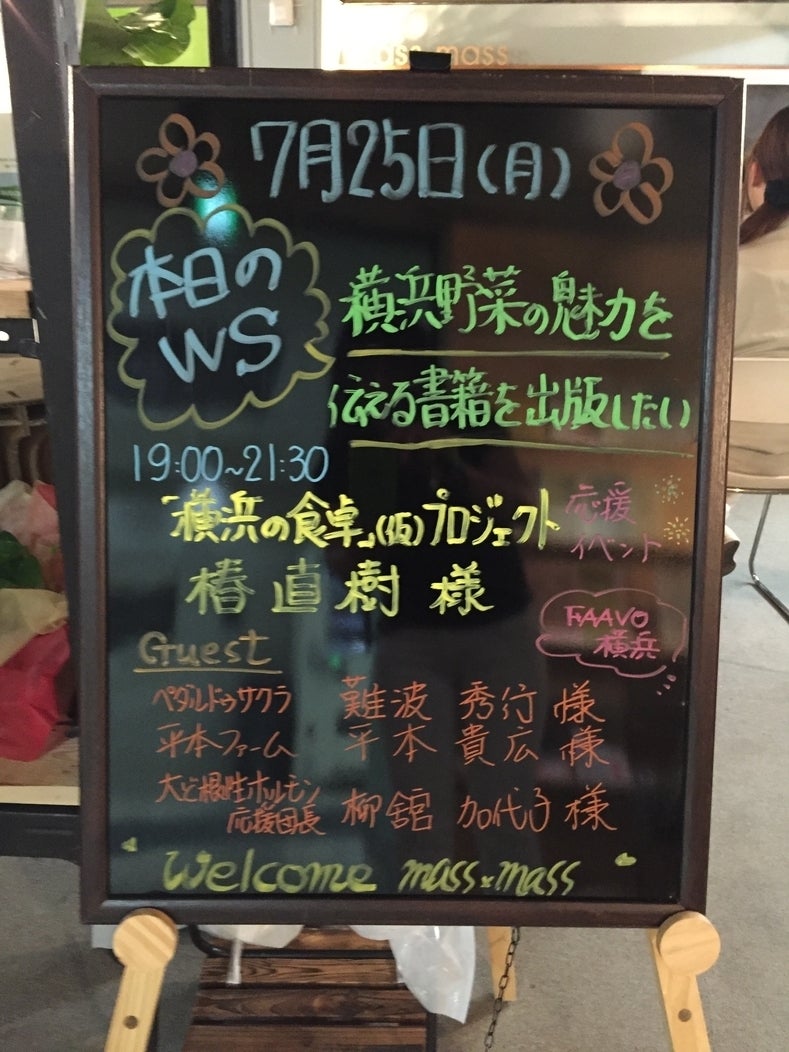 mass mass
7月25日(月)
本日の
WS
横浜野菜の魅力を
伝える書籍を出版したい
19:00~21:30
「横浜の食卓」(仮)プロジェクト
応援
イベント
椿 直樹 様
FAAVO
横浜
Guest
ペダルドゥサクラ 難波 秀行 様
平本ファーム 平本 貴広 様
大ど根性ホルモン
応援団長 柳舘 加代子 様
Welcome mass×mass